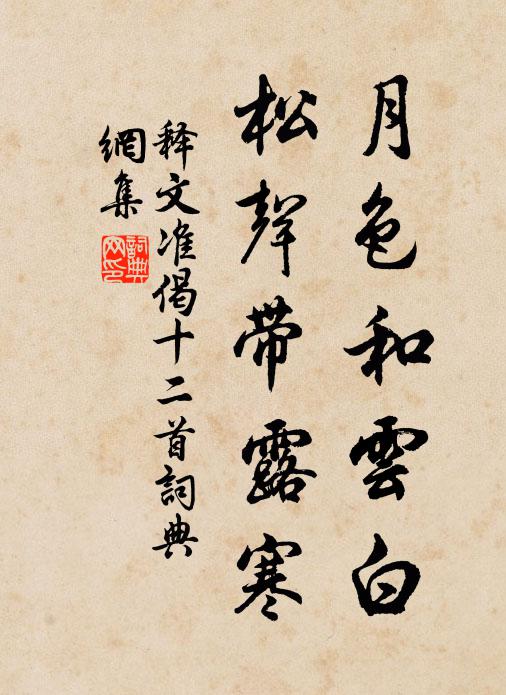 月色和雲白
松聲带露寒
释文准偈十二首詞典
網集
詞典
网印